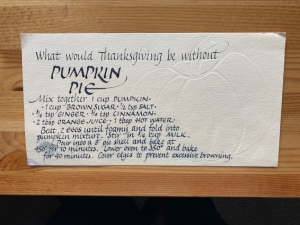 What would Thanksgiving be without
PUMPKIN
PIE
Mix together 1 cup PUMPKIN ·
· 1 cup BROWN SUGAR · ½ tsp SALT ·
· ¾ tsp GINGER · ¾ tsp CINNAMON ·
· 2 tbsp ORANGE JUICE · 1 tbsp HOT WATER
Beat 2 EGGS until foamy and fold into
pumpkin mixture. Stir in ¾ cup MILK.
Pour into a 8" pie shell and bake at
450° for 10 minutes. Lower oven to 350° and bake
for 40 minutes. Cover edges to prevent excessive browning.